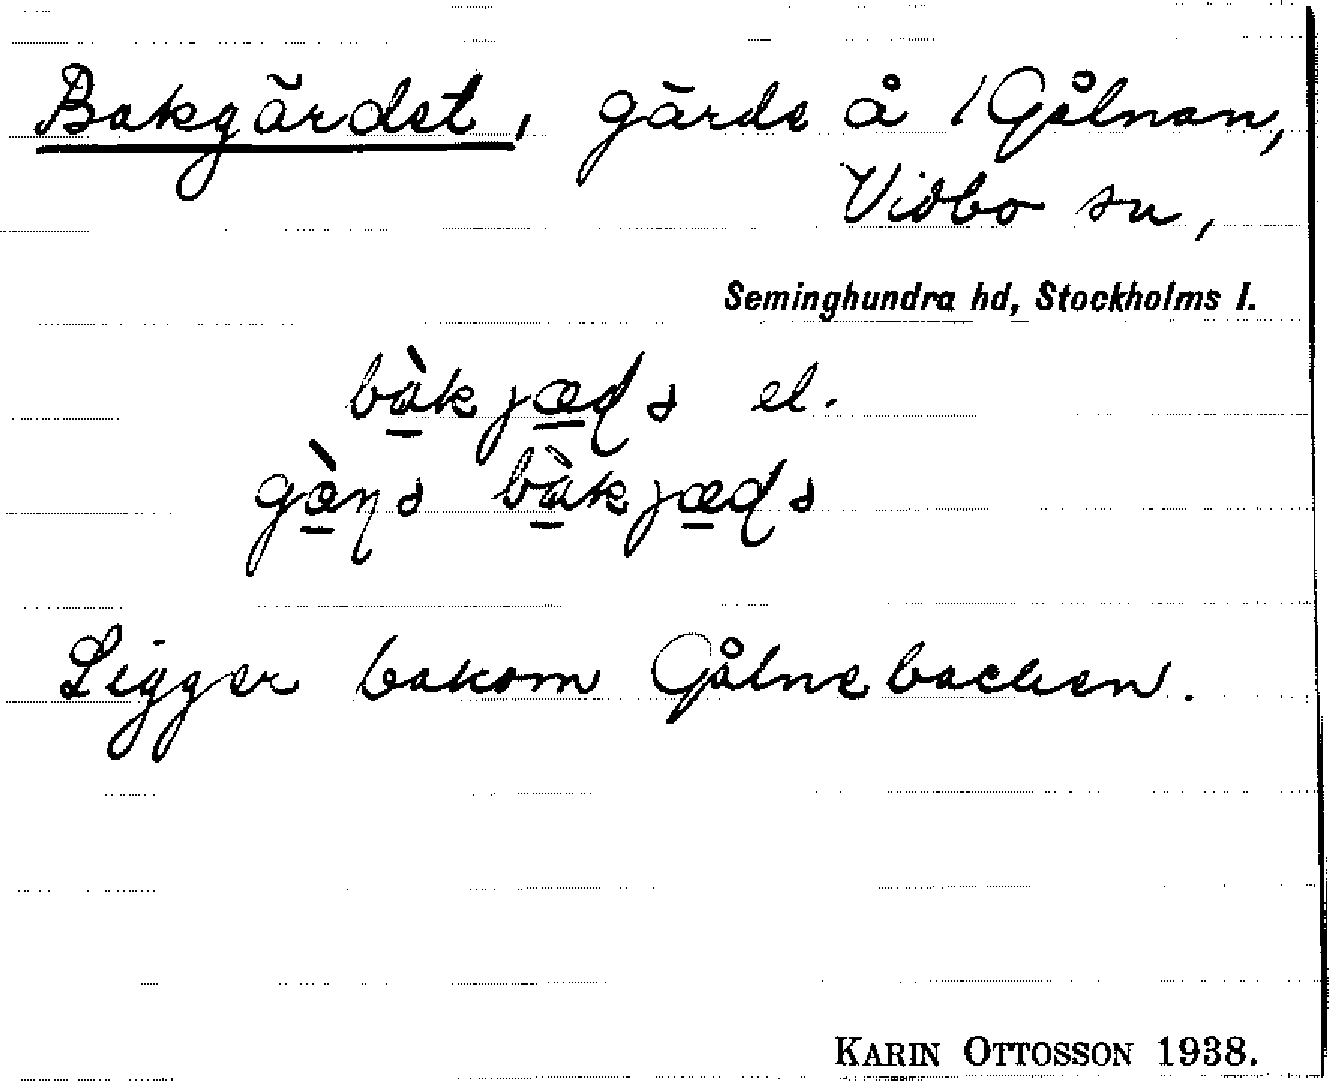 Bakgärdet, gärde å 1 Gålnan,
Vidbo sn,
Seminghundra hd, Stockholms l.
bàkjæḍə el.
gæ̀ṇə bàkjæḍə
Ligger bakom Gålnebacken.
KARIN OTTOSSON 1938.